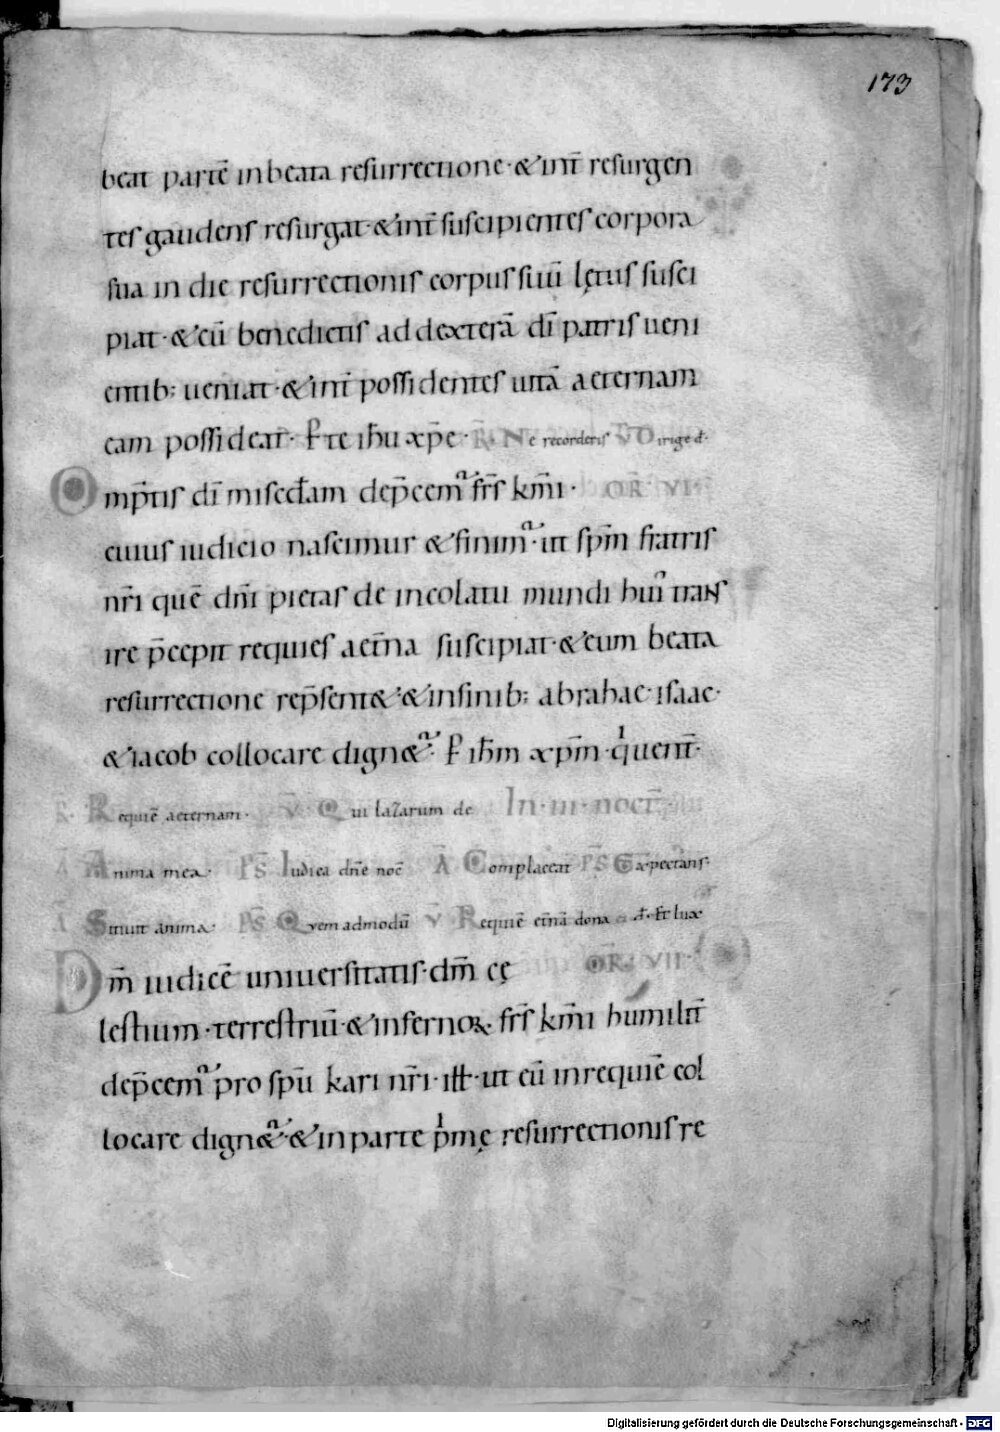 173
beat partē in beata resurrectione · & int̄ resurgen
tes gaudens resurgat · & int̄ suscipientes corpora
sua in die resurrectionis corpus suū lętus susci
piat · & cū benedictis ad dexterā dī patris ueni
entib; ueniat · & int̄ possidentes uitā aeternam
eam possideat · P te ih̄u xp̄e · R̄ Ne recorderis V̄ Dirige d̄·
Omp̄tis dī mis̄cdam dep̄cemᷣ fr̄s km̄i · OR̄ VI
cuius iudicio nascimur & finimᷣ · ut sp̄m fratris
nr̄i quē dn̄i pietas de incolatu mundi huiꝰ trans
ire p̄cepit requies aet̄na suscipiat · & eum beata
resurrectione rep̄sent& · & in sinib; abrahae · isaac ·
& iacob collocare dign&ᷣ · P ih̄m xp̄m · qui uent̄·
R̄ Requiē aeternam · V̄ Qui lazarum de In · III · noct̄ ·
Ā Anima mea · PS̄ Iudica dn̄e noc̄ Ā Complaceat PS̄ Expectans
Ā Sitiuit anima · PS̄ Quem admodū V̄ Requiē etnā dona d̄· Et lux
Dm̄ iudicē uniuersitatis · dm̄ cę OR̄ VII ·
lestium · terrestriū · & infernoꝝ · fr̄s km̄i humilit̄
dep̄cemᷣ pro spū kari nr̄i · ill̄ · ut eū in requiē col
locare dign&ᷣ · & in parte p̍mę resurrectionis re
Digitalisierung gefördert durch die Deutsche Forschungsgemeinschaft - DFG